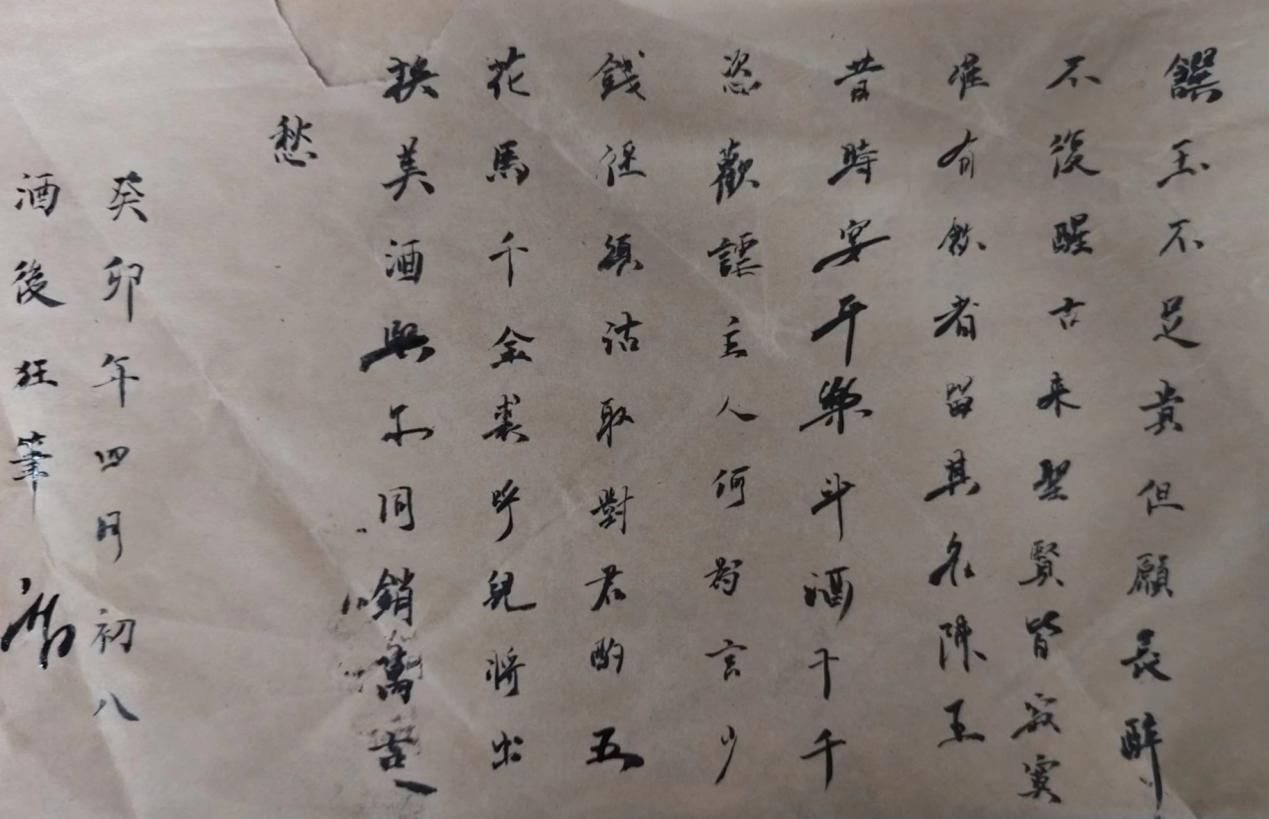 饌玉不足貴但願長醉
不復醒古来聖賢皆寂寞
惟有飲者留其名陳王
昔時宴平樂斗酒十千
恣歡謔主人何為言少
錢径須沽取對君酌五
花馬千金裘呼兒將出
換美酒與尓同銷萬古
愁
癸卯年四月初八
酒後狂筆